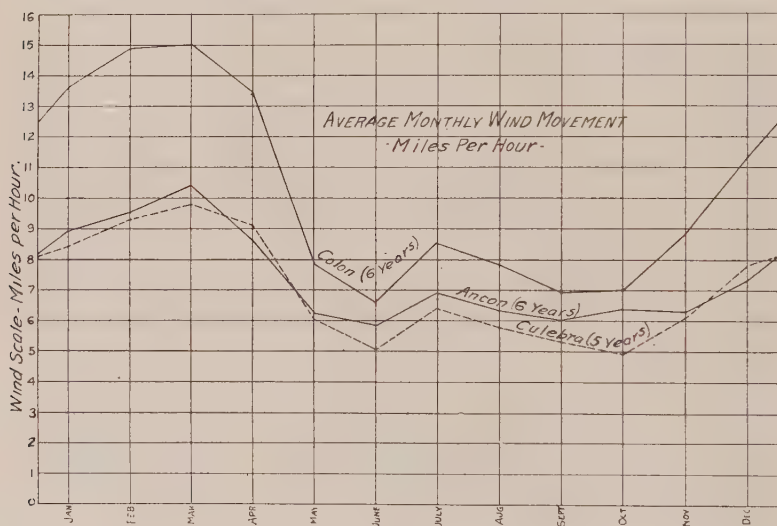 16
15
14
13
12
11
10
9
8
7
6
5
4
3
2
1
0
Wind Scale - Miles per Hour.
AVERAGE MONTHLY WIND MOVEMENT
- Miles Per Hour -
Colon (6 years)
Ancon (6 Years)
Culebra (5 Years)
JAN
FEB
MAR
APR
MAY
JUNE
JULY
AUG
SEPT
OCT
NOV
DEC